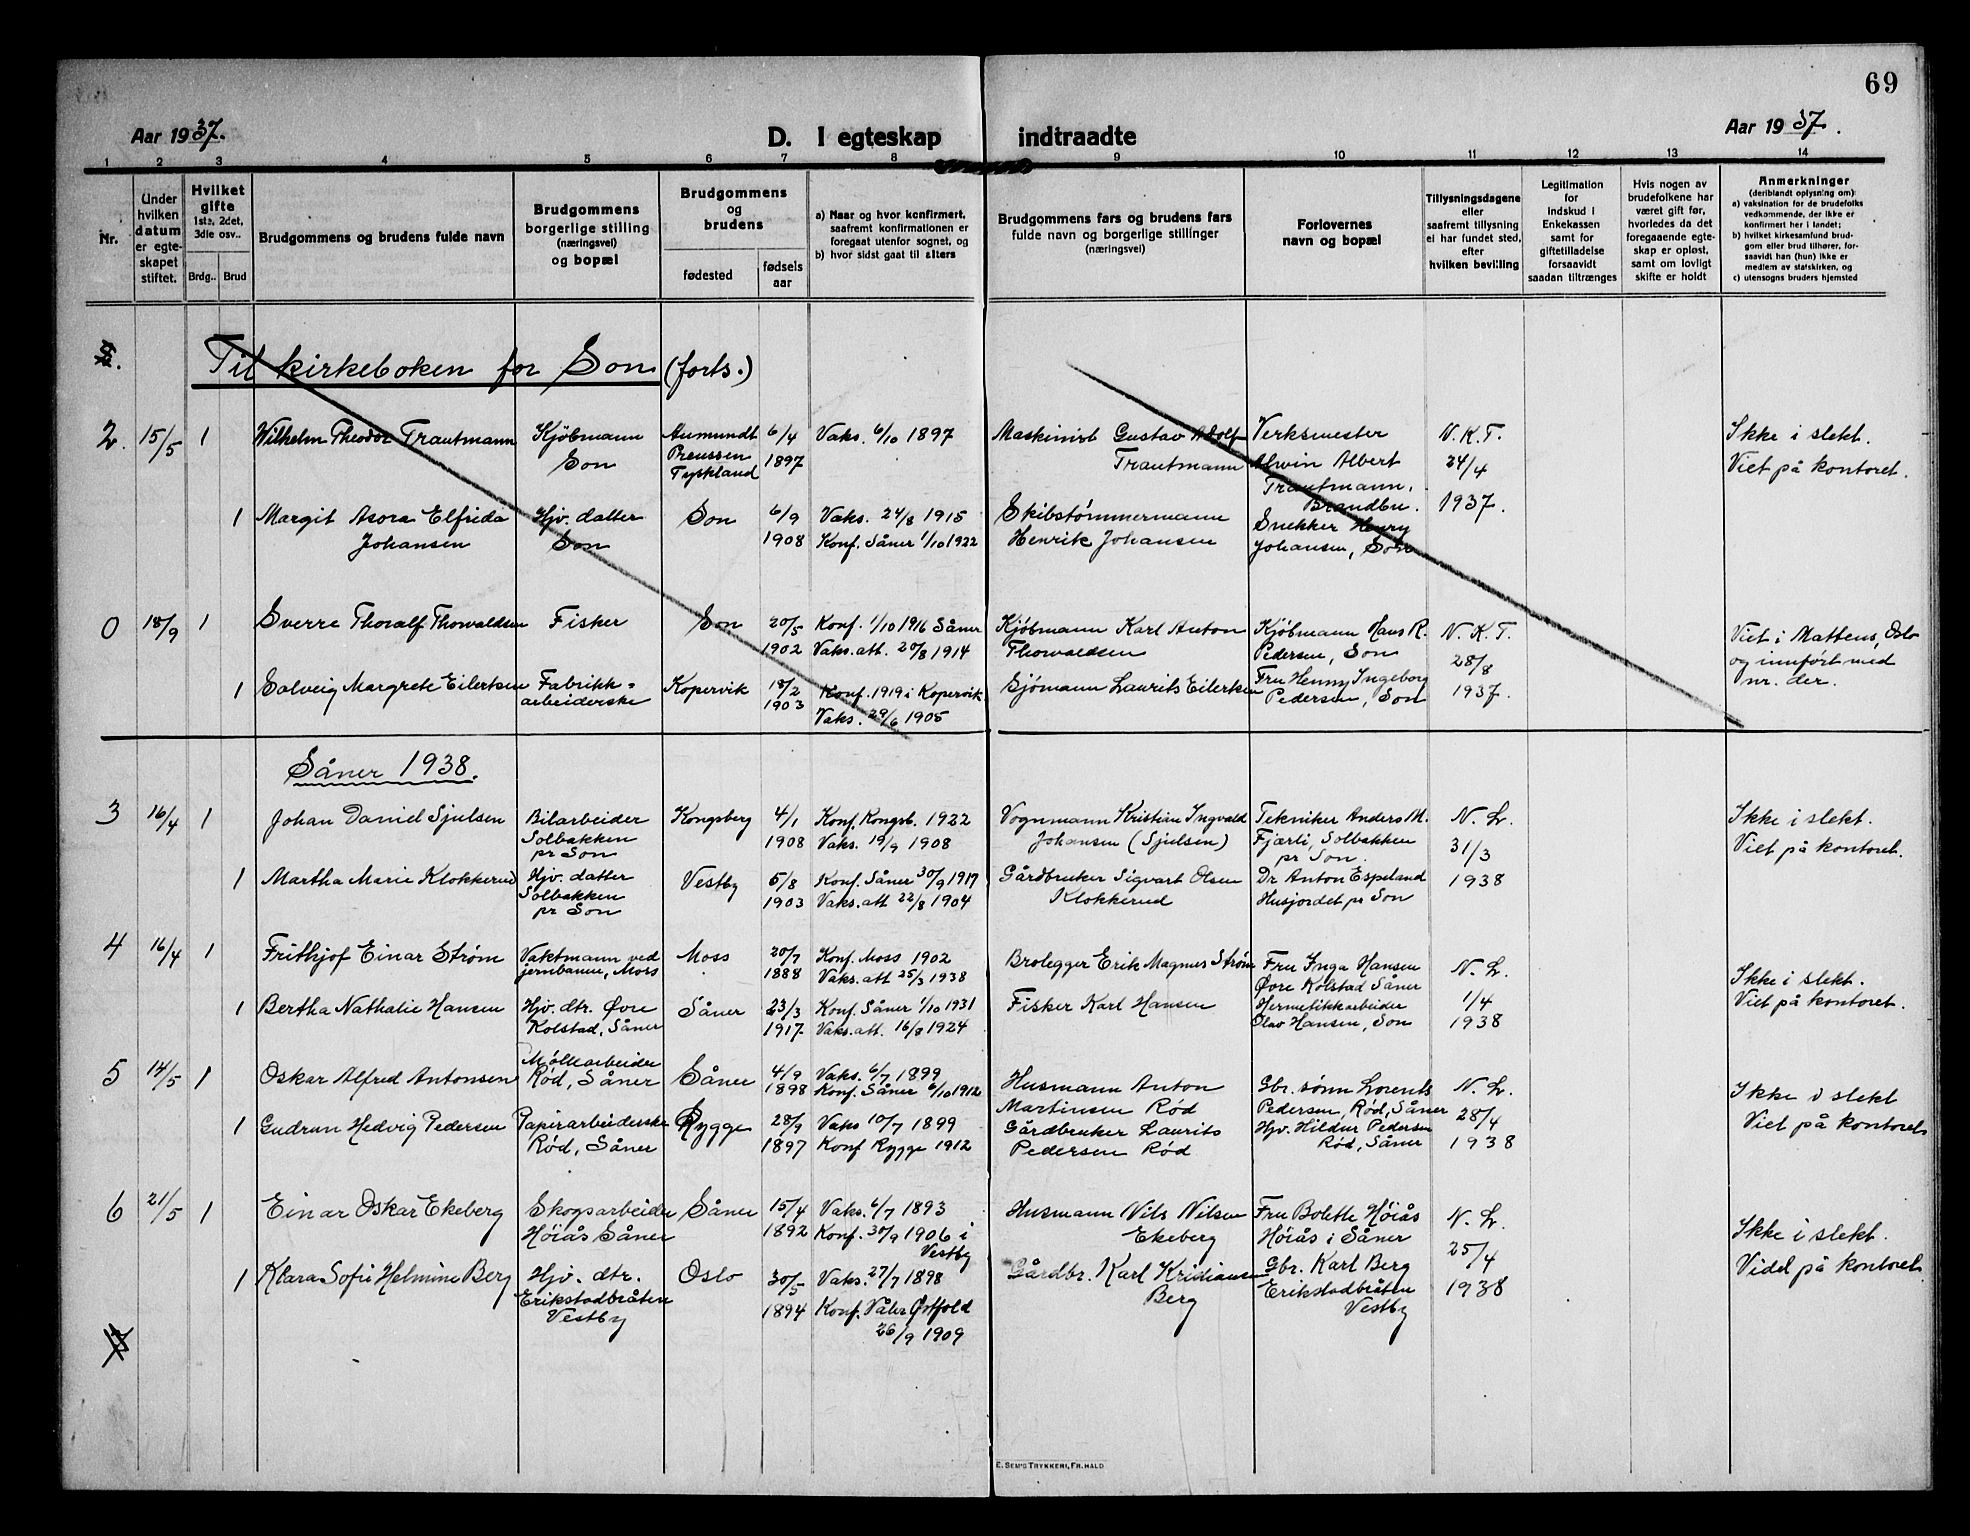 69
Aar 1937.
D. I egteskap indtraadte
Aar 1937.
1 2 3 4 5 6 7 8 9 10 11 12 13 14
Nr.
Under hvilken datum er egteskapet stiftet.
Hvilket gifte 1ste, 2det, 3die osv..
Brdg.. Brud
Brudgommens og brudens fulde navn
Brudgommens borgerlige stilling (næringsvei) og bopæl
Brudgommens og brudens
fødested
fødselsaar
a) Naar og hvor konfirmert, saafremt konfirmationen er foregaat utenfor sognet, og
b) hvor sidst gaat til alters
Brudgommens fars og brudens fars fulde navn og borgerlige stillinger (næringsvei)
Forlovernes navn og bopæl
Tillysningsdagene eller saafremt tillysning ei har fundet sted, efter hvilken bevilling
Legitimation for Indskud i Enkekassen samt for giftetilladelse forsaavidt saadan tiltrænges
Hvis nogen av brudefolkene har været gift før, hvorledes da det foregaaende egteskap er opløst, samt om lovligt skifte er holdt
Anmerkninger
(deriblandt oplysning om)
a) vaksination for de brudefolks vedkommende, der ikke er konfirmert her i landet;
b) hvilket kirkesamfund brudgom eller brud tilhører, forsaavidt han (hun) ikke er medlem av statskirken, og
c) utensogns bruders hjemsted
Til kirkeboken for Son (forts.)
2. 15/5 1 Wilhelm Theodor Trautmann
Kjøbmann
Son
Aumundt
Preussen
Tyskland
6/4
1897
Vaks. 6/10 1897
Maskinist Gustav Adolf
Trautmann
Verksmester
Alwin Albert
Trautmann,
Brandbu.
N. K. T.
24/4
1937.
Ikke i slekt.
Viet på kontoret.
1 Margit Asora Elfrida
Johansen
Hjv. datter
Son
Son
6/9
1908
Vaks. 24/8 1915
Konf. Såner 1/10 1922
Skibstømmermann
Henrik Johansen
Snekker Henry
Johansen, Son
0 18/9 1 Sverre Thoralf Thorvaldsen
Fisker
Son
20/5
1902
Konf. 1/10 1916 Såner
Vaks. att. 20/8 1914
Kjøbmann Karl Anton
Thorvaldsen
Kjøbmann Hans R.
Pedersen, Son
N. K. T.
28/8
1937.
Viet i Matteus, Oslo
og innført med
nr. der.
1 Solveig Margrete Eilertsen
Fabrikk=
arbeiderske
Kopervik
18/2
1903
Konf. 1919 i Kopervik
Vaks. 29/6 1905
Sjømann Laurits Eilertsen
Fru Henny Ingeborg
Pedersen, Son
Såner 1938.
3 16/4 1 Johan Daniel Sjulsen
Bilarbeider
Solbakken
pr Son
Kongsberg
4/1
1908
Konf. Kongsb. 1922
Vaks. 19/9 1908
Vognmann Kristian Ingvald
Johansen (Sjulsen)
Tekniker Anders M.
Fjærli, Solbakken
pr Son.
N. L.
31/3
1938
Ikke i slekt.
Viet på kontoret.
1 Martha Marie Klokkerud
Hjv. datter
Solbakken
pr Son
Vestby
5/8
1903
Konf. Såner 30/9 1917
Vaks. att 22/8 1904
Gårdbruker Sigvart Olsen
Klokkerud
Dr Anton Espeland
Husjordet pr Son
4 16/4 1 Frithjof Einar Strøm
Vaktmann ved
jernbanen, Moss
Moss
20/7
1888
Konf. Moss 1902
Vaks. att 25/3 1938
Brolegger Erik Magnus Strøm
Fru Inga Hansen
Øvre Kolstad Såner
N. L.
1/4
1938
Ikke i slekt.
Viet på kontoret.
1 Bertha Nathalie Hansen
Hjv. dtr. Øvre
Kolstad, Såner
Såner
23/3
1917
Konf. Såner 1/10 1931
Vaks. att. 16/8 1924
Fisker Karl Hansen
Hermetikkarbeider
Olav Hansen, Son
5 14/5 1 Oskar Alfred Antonsen
Møllearbeider
Rød, Såner
Såner
4/9
1898
Vaks. 6/7 1899
Konf. Såner 6/10 1912
Husmann Anton
Martinsen Rød
Gbr. sønn Lorents
Pedersen, Rød, Såner
N. L.
28/4
1938
Ikke i slekt
Viet på kontoret
1 Gudrun Hedvig Pedersen
Papirarbeiderske
Rød, Såner
Rygge
28/9
1897
Vaks 10/7 1899
Konf Rygge 1912
Gårdbruker Laurits
Pedersen Rød
Hjv. Hildur Pedersen
Rød, Såner
6 21/5 1 Einar Oskar Ekeberg
Skogsarbeider
Høiås Såner
Såner
15/4
1892
Vaks. 6/7 1893
Konf. 30/9 1906 i
Vestby
Husmann Nils Nilsen
Ekeberg
Fru Bolette Høiås
Høiås i Såner
N. L.
25/4
1938
Ikke i slekt.
Videt på kontoret
1 Klara Sofie Helmine Berg
Hjv. dtr.
Erikstadbråten
Vestby
Oslo
30/5
1894
Vaks. 27/7 1898
Konf. Våler Østfold
26/9 1909
Gårdbr. Karl Kristiansen
Berg
Gbr. Karl Berg
Erikstadbråten
Vestby
E. SEM'S TRYKKERI, FR.HALD